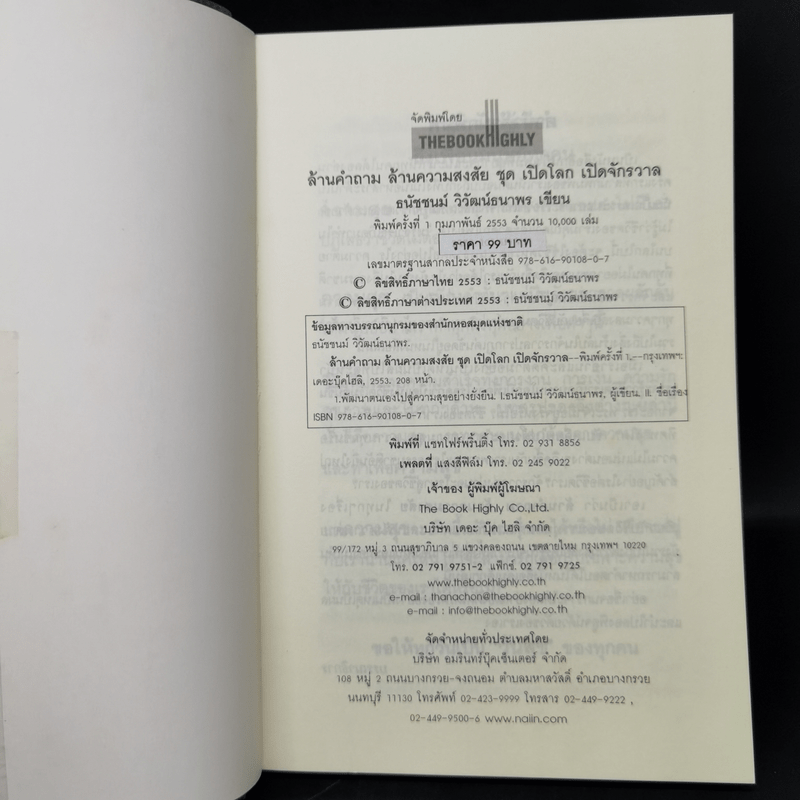 จัดพิมพ์โดย
THEBOOKHIGHLY
ล้านคำถาม ล้านความสงสัย ชุด เปิดโลก เปิดจักรวาล
ธนัชชนม์ วิวัฒน์ธนาพร เขียน
พิมพ์ครั้งที่ 1 กุมภาพันธ์ 2553 จำนวน 10,000 เล่ม
ราคา 99 บาท
เลขมาตรฐานสากลประจำหนังสือ 978-616-90108-0-7
© ลิขสิทธิ์ภาษาไทย 2553 : ธนัชชนม์ วิวัฒน์ธนาพร
© ลิขสิทธิ์ภาษาต่างประเทศ 2553 : ธนัชชนม์ วิวัฒน์ธนาพร
ข้อมูลทางบรรณานุกรมของสำนักหอสมุดแห่งชาติ
ธนัชชนม์ วิวัฒน์ธนาพร.
ล้านคำถาม ล้านความสงสัย ชุด เปิดโลก เปิดจักรวาล--พิมพ์ครั้งที่ 1.--กรุงเทพฯ:
เดอะบุ๊คไฮลิ, 2553. 208 หน้า.
1.พัฒนาตนเองไปสู่ความสุขอย่างยั่งยืน. I.ธนัชชนม์ วิวัฒน์ธนาพร, ผู้เขียน. II. ชื่อเรื่อง
ISBN 978-616-90108-0-7
พิมพ์ที่ แซทโฟร์พริ้นติ้ง โทร. 02 931 8856
เพลตที่ แสงสีฟิล์ม โทร. 02 245 9022
เจ้าของ ผู้พิมพ์ผู้โฆษณา
The Book Highly Co.,Ltd.
บริษัท เดอะ บุ๊ค ไฮลิ จำกัด
99/172 หมู่ 3 ถนนสุขาภิบาล 5 แขวงคลองถนน เขตสายไหม กรุงเทพฯ 10220
โทร. 02 791 9751-2 แฟ็กซ์. 02 791 9725
www.thebookhighly.co.th
e-mail : thanachon@thebookhighly.co.th
e-mail : info@thebookhighly.co.th
จัดจำหน่ายทั่วประเทศโดย
บริษัท อมรินทร์บุ๊คเซ็นเตอร์ จำกัด
108 หมู่ 2 ถนนบางกรวย-จงถนอม ตำบลมหาสวัสดิ์ อำเภอบางกรวย
นนทบุรี 11130 โทรศัพท์ 02-423-9999 โทรสาร 02-449-9222 ,
02-449-9500-6 www.naiin.com